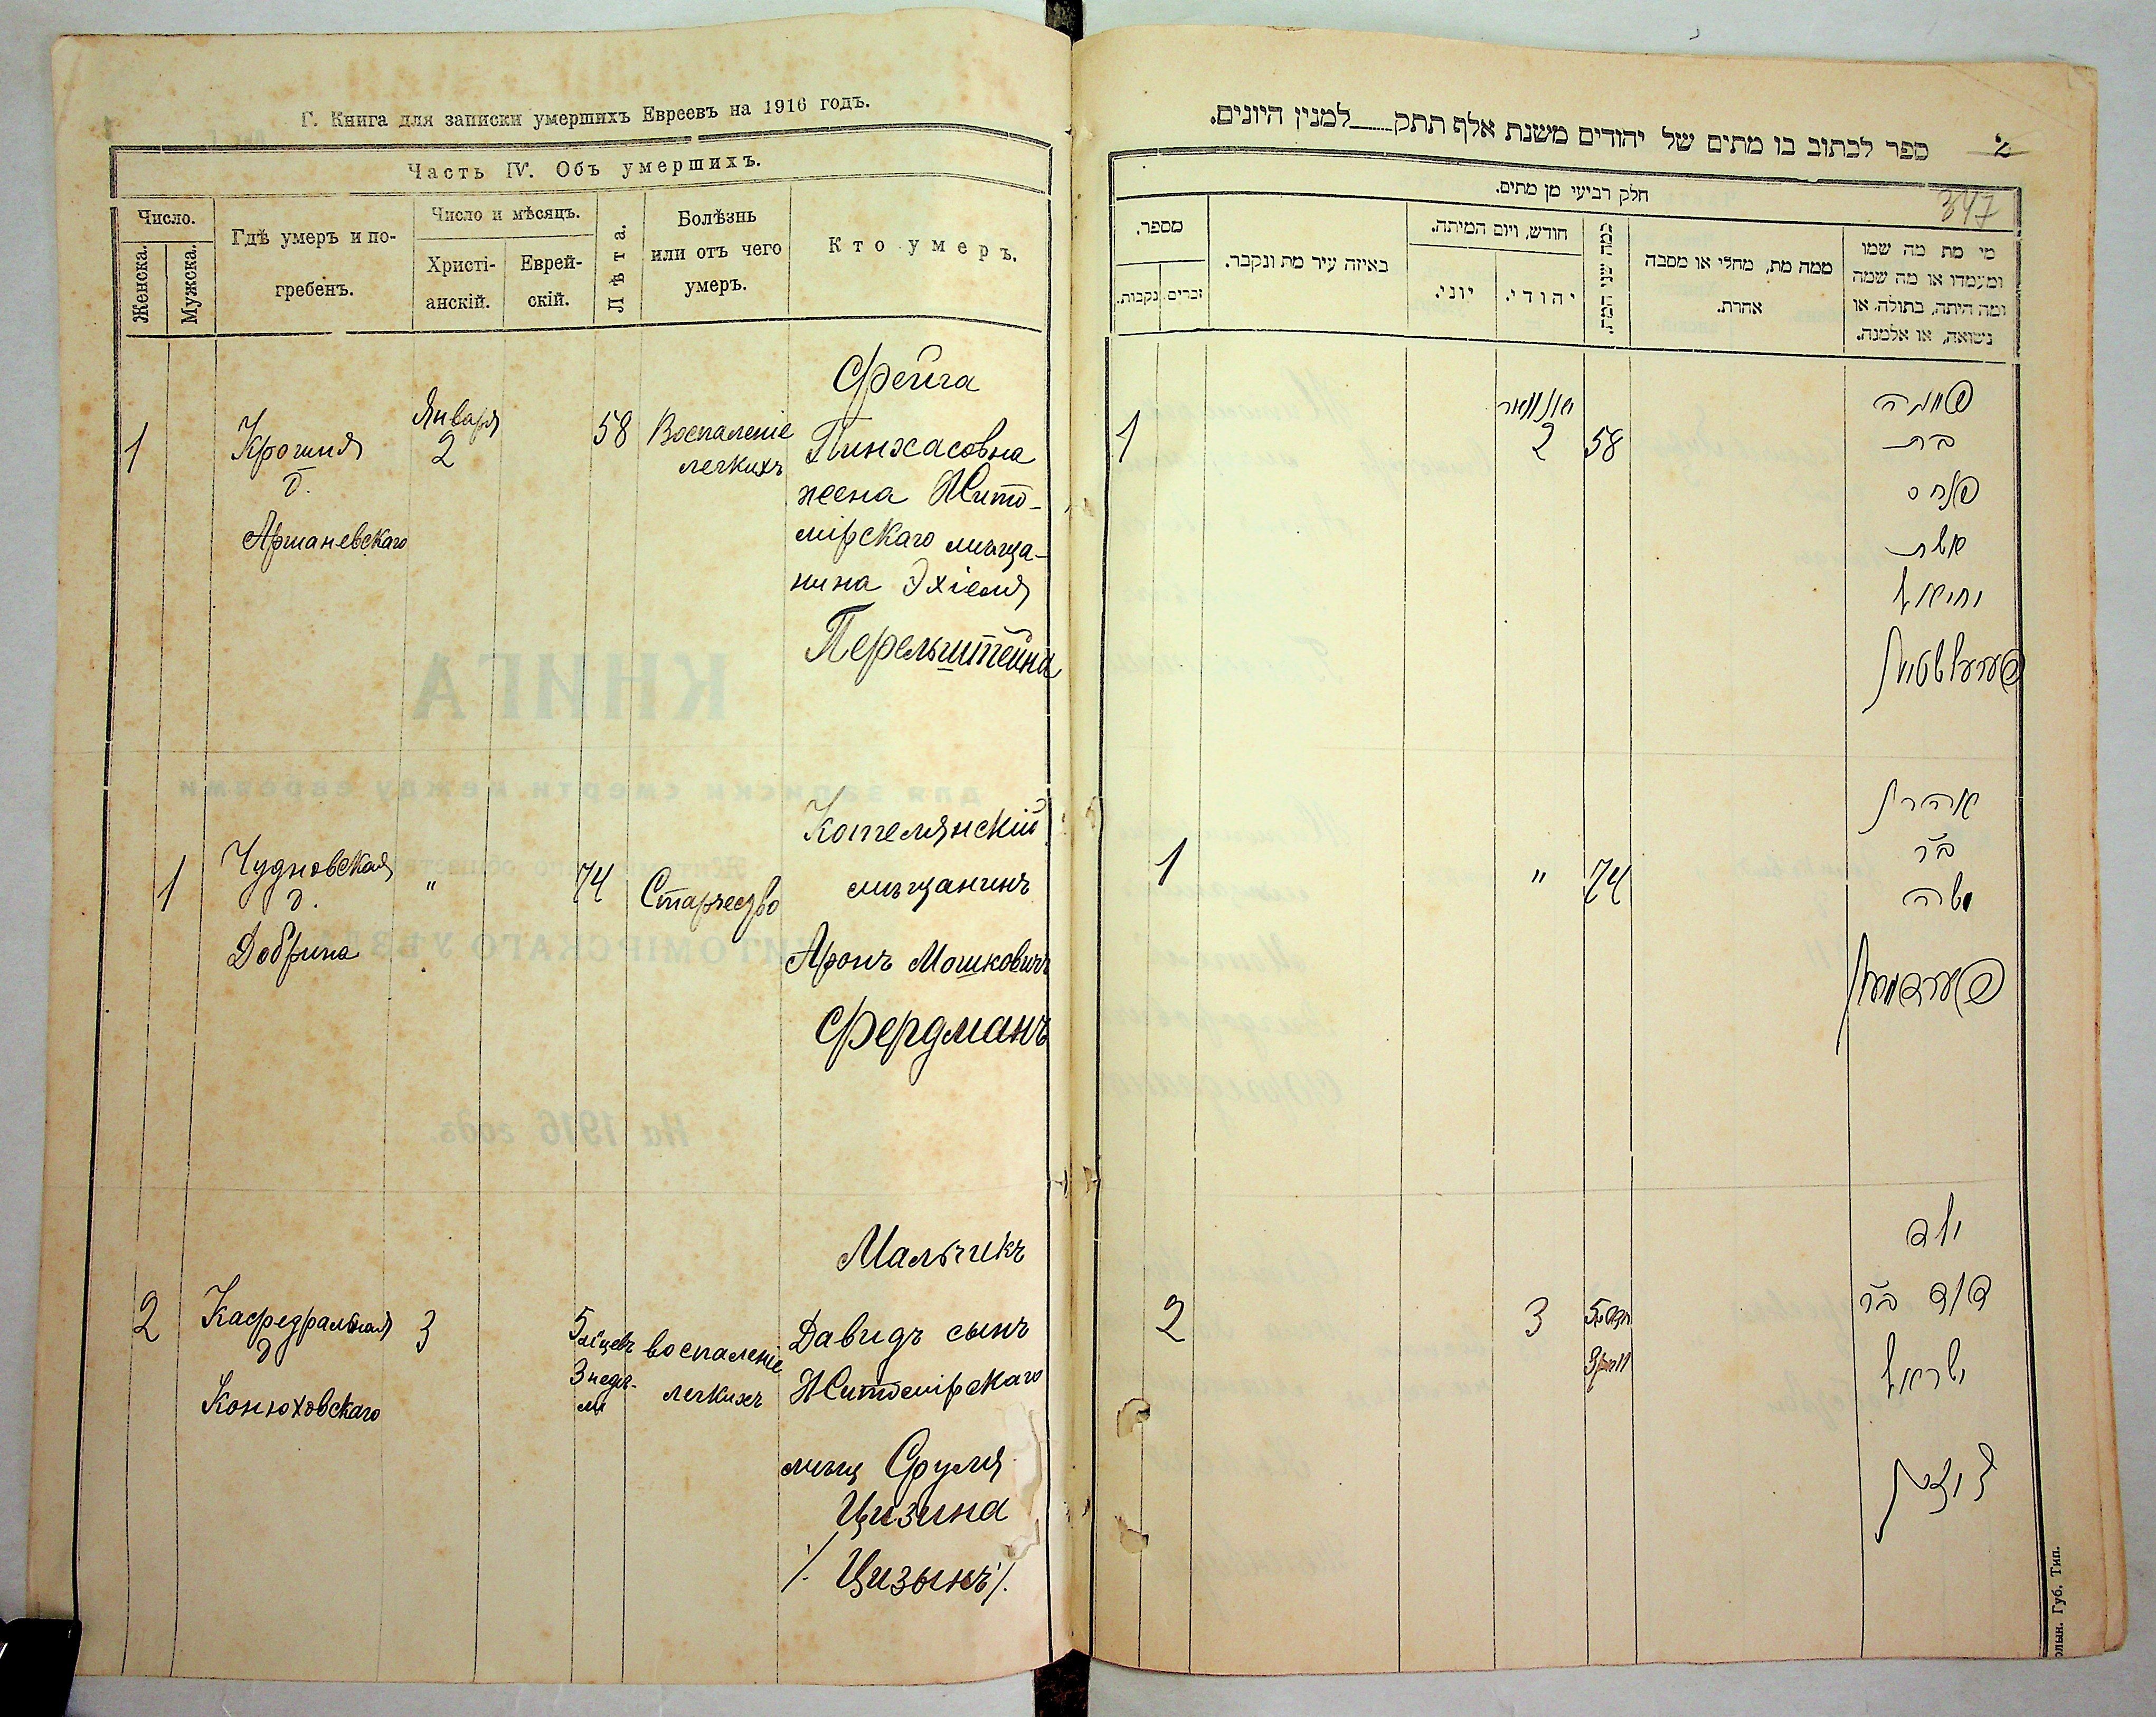 Г. Книга для записки умершихъ Евреевъ на 1916 годъ.
Часть IV. Объ умершихъ.
Число.
Женска.
Мужска.
Гдѣ умеръ и по-
гребенъ.
Число и мѣсяцъ.
Христі-
анскій.
Еврей-
скій.
Лѣта.
Болѣзнь
или отъ чего
умеръ.
Кто умеръ.
1
Крошня
д.
Аршаневскаго
Января
2
58
Воспаленіе
легкихъ
Фейга
Пинхасовна
жена Жито-
мірскаго мѣща-
нина Эхіеля
Перельштейна
1
Чудновская
д.
Добрина
"
74
Старчество
Котелянскій
мѣщанинъ
Аронъ Мошковичъ
Фердманъ
2
Кафедральная
д
Конюховскаго
3
5
мѣцевъ
3 недѣ-
ли
воспаленіе
легкихъ
Мальчикъ
Давидъ сынъ
Житомірскаго
мѣщ Сруля
Цизина
/. Цизынъ /.
ספר לכתוב בו מתים של יהודים משנת אלף תתק למנין היונים.
2
347
חלק רביעי מן מתים.
מספר.
נקבות.
זכרים.
באיזה עיר מת ונקבר.
חודש, ויום המיתה.
יוני.
יהודי.
כמה שני המת.
ממה מת, מחלי או מסבה
אחרת.
מי מת מה שמו
ומעמדו או מה שמה
ומה היתה, בתולה. או
נשואה, או אלמנה.
1
יאנוואר
2
58
פייגה
בת
פנחס
אשת
יחיאל
פערעלשטיין
1
"
74
אהרן
ב"ר
משה
פערדמאן
2
3
5
3
ילד
דוד ב"ר
ישראל
ציזין
олын. Губ. Тип.